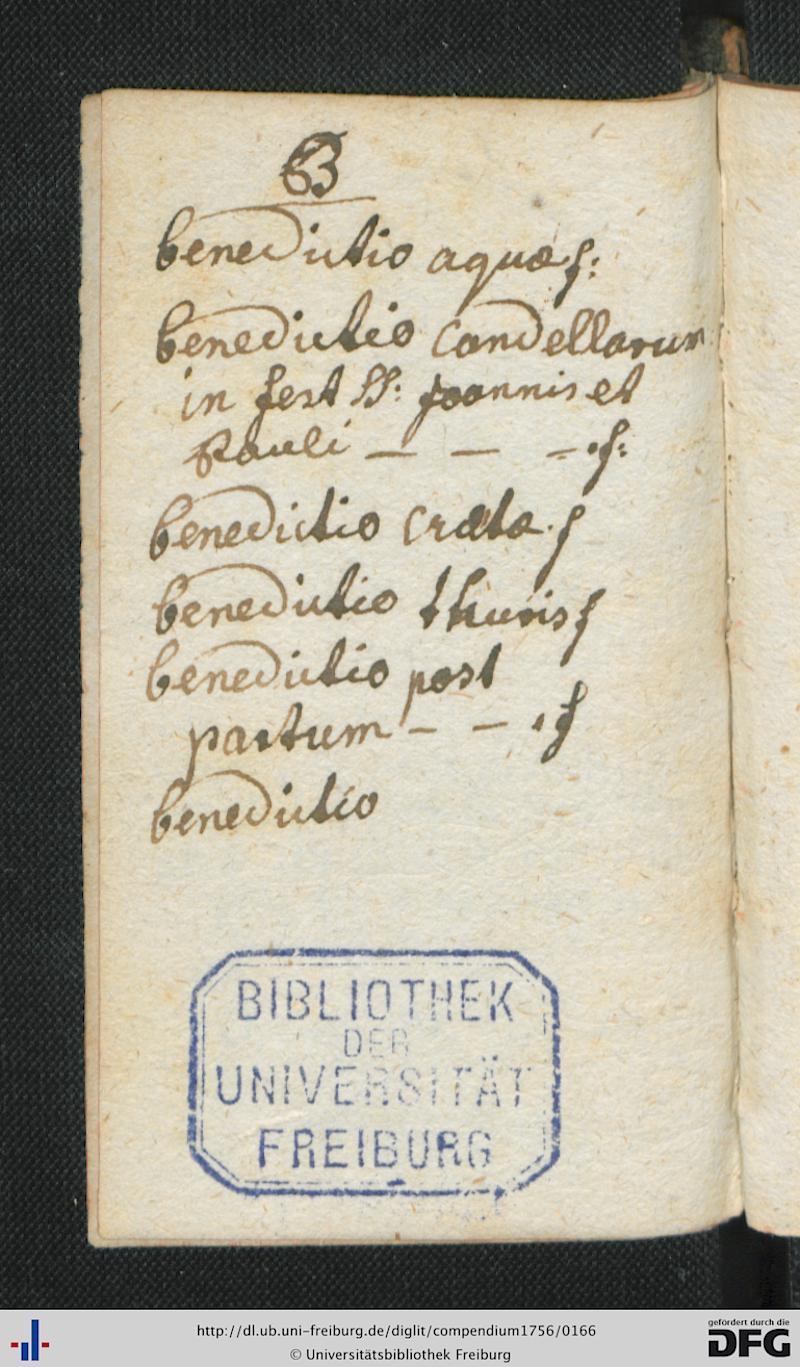 B
benedictio aquæ f:
benedictio candellarum
in fest SS: Joannis et
Pauli — — — .f:
benedictio cretæ . f
benedictio thuris f
benedictio post
partum — — . f
benedictio
BIBLIOTHEK
DER
UNIVERSITÄT
FREIBURG
http://dl.ub.uni-freiburg.de/diglit/compendium1756/0166
© Universitätsbibliothek Freiburg
gefördert durch die
DFG